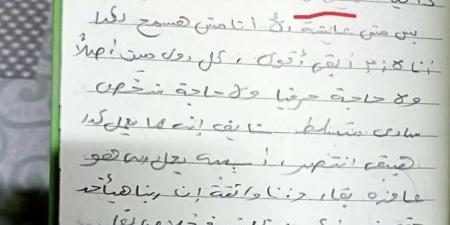 بس مش عايشة، لأ أنا مش هسمح بكدا
أنا لازم أبقى أقوى، كل دول مش أصلاً
ولا حاجة حرفيا ولا حاجة شخص
سادي متسلط شايف إنه ما يعمل كدا
هيبقى انتصر، أسيبه يعمل هو
عاوزه بقا، وأنا واثقة إن ربنا هياخد